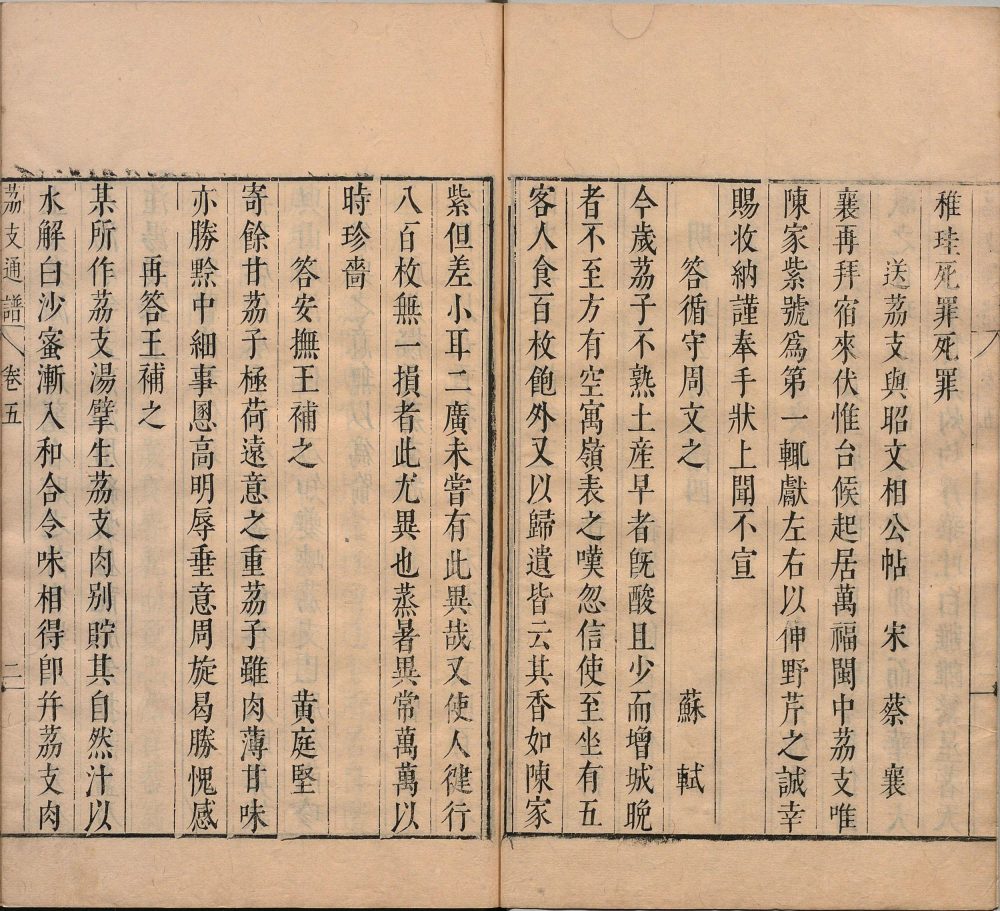 稚珪死罪死罪
送荔支與昭文相公帖　宋　蔡襄
襄再拜宿來伏惟台候起居萬福閩中荔支唯
陳家紫號爲第一輒獻左右以伸野芹之誠幸
賜收納謹奉手狀上聞不宣
答循守周文之　蘇軾
今歲荔子不熟土産早者旣酸且少而增城晚
者不至方有空寓嶺表之嘆忽信使至坐有五
客人食百枚飽外又以歸遺皆云其香如陳家
紫但差小耳二廣未嘗有此異哉又使人健行
八百枚無一損者此尤異也蒸暑異常萬萬以
時珍嗇
答安撫王補之　黄庭堅
寄餘甘荔子極荷遠意之重荔子雖肉薄甘味
亦勝黔中細事慁高明辱垂意周旋曷勝愧感
再答王補之
某所作荔支湯擘生荔支肉别貯其自然汁以
水解白沙蜜漸入和合令味相得卽幷荔支肉
荔支通譜　卷五　二